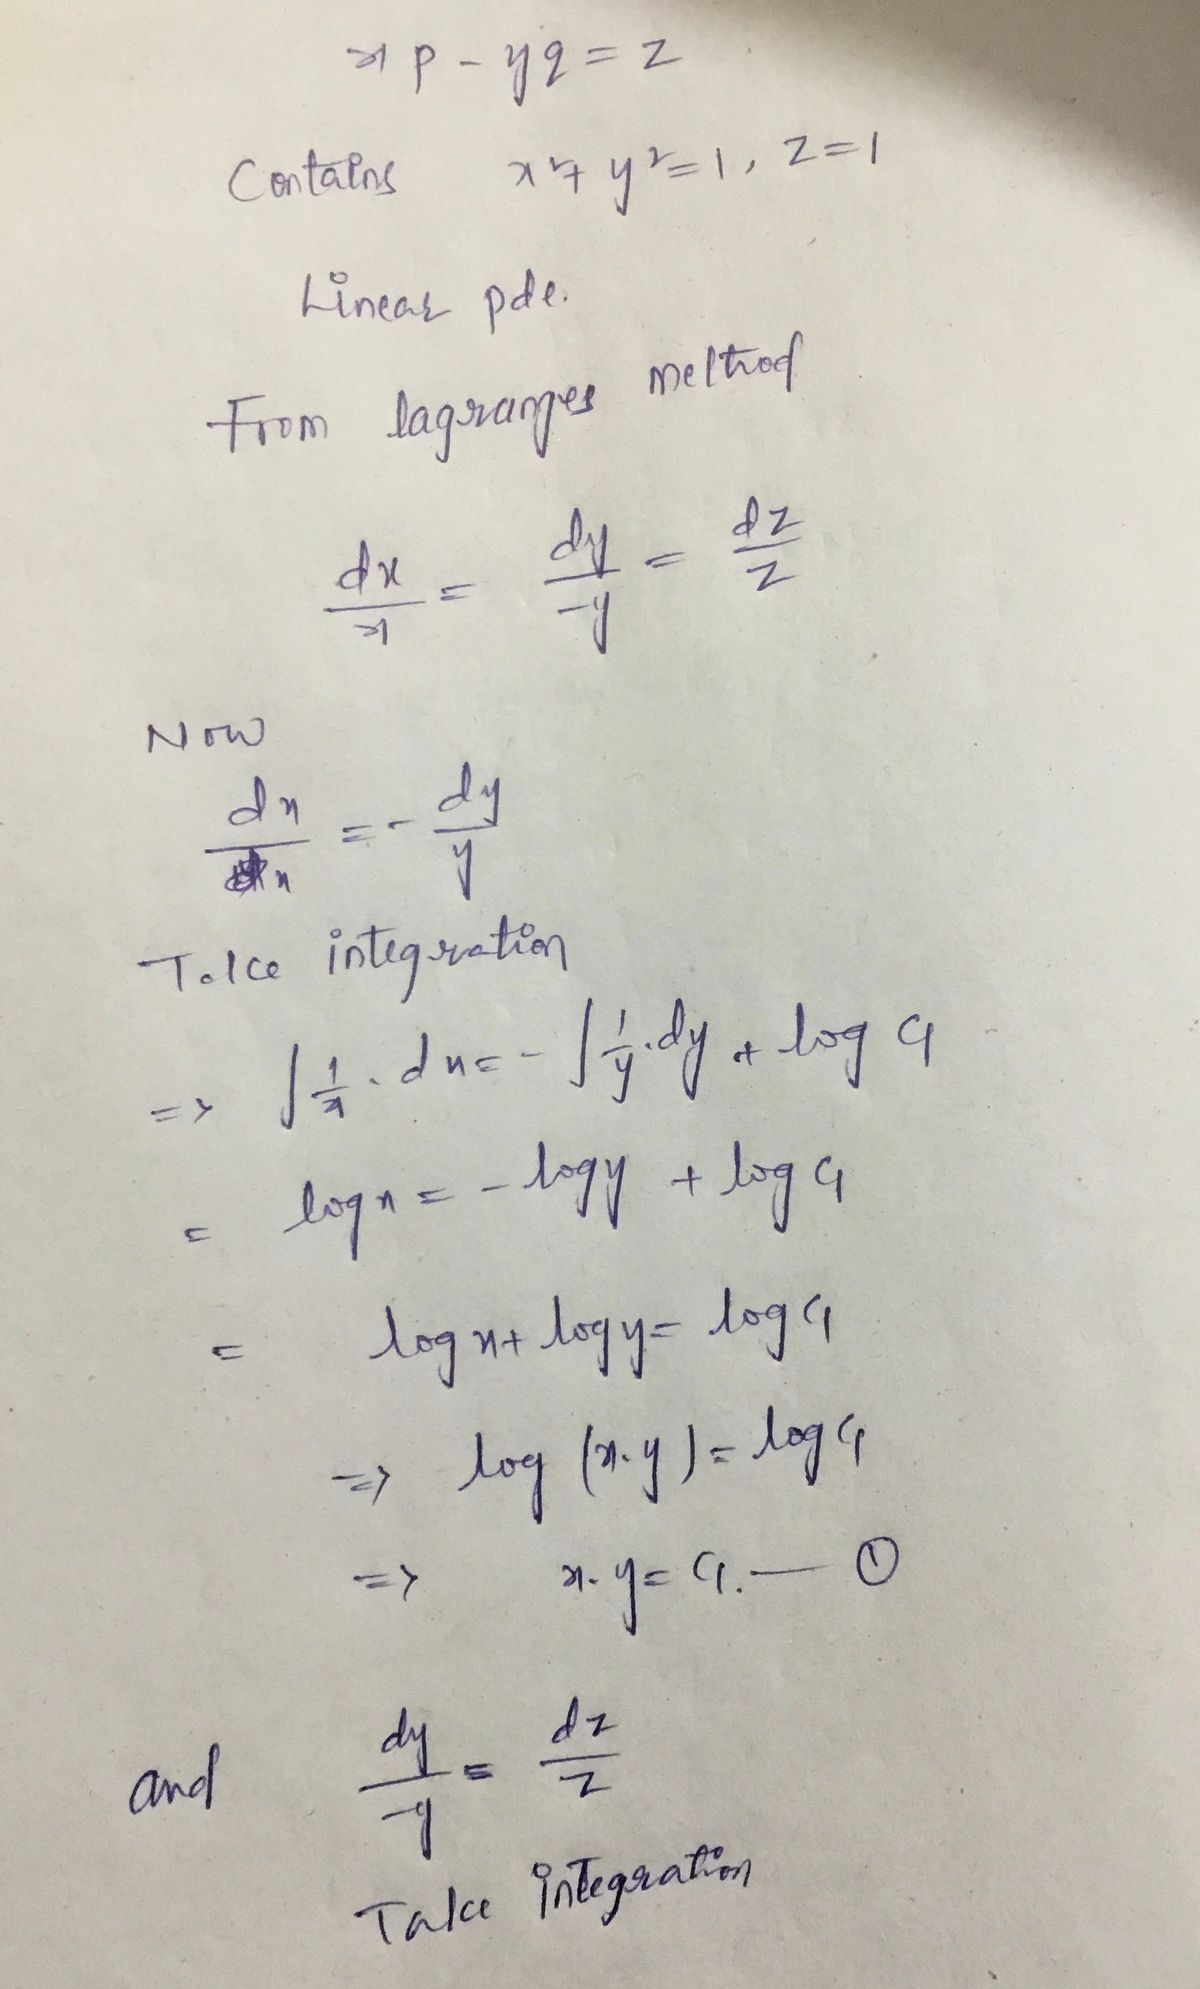 xp - yq = z
Contains x² + y² = 1, z = 1
Linear pde.
From lagranges melthod
dx/x = dy/-y = dz/z
Now
dx/x = - dy/y
Take integration
=> ∫ 1/x · dx = - ∫ 1/y · dy + log C₁
= log x = - log y + log C₁
= log x + log y = log C₁
=> log (x·y) = log C₁
=> x·y = C₁. — ①
and dy/-y = dz/z
Take integration